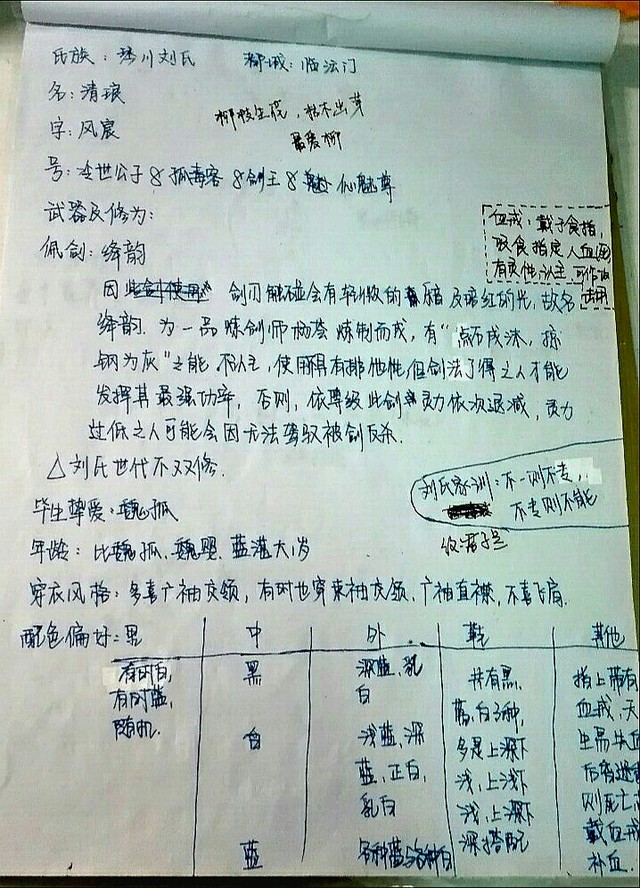 氏族：琴川刘氏 都城：临法门
名：清琅
字：风宸
柳枝生院，枯木出芽
最爱柳
号：冷世公子&孤毒客&剑主&魅仙魅尊
武器及修为：
血戒：戴于食指，
吸食指定人血
有灵性认主 可作
佩剑：绛韵
因 剑刃触碰会有轻微的暗及绯红的光，故名
绛韵. 为一品炼剑师 炼制而成，有“点石成沫，
钢为灰”之能 不认主，使用具有排他性，但剑法了得之人才能
发挥其最强功率，否则，依等级此剑灵力依次退减，灵力
过低之人可能会因无法驾驭被剑反杀.
△刘氏世代不双修.
刘氏家训：不一则不专，
不专则不能
毕生挚爱：魏孤
年龄：比魏孤、魏婴、蓝湛大1岁
穿衣风格：多喜广袖交领，有时也穿束袖交领、广袖直襟，不喜飞肩.
配色偏好：男 中 外 靴 其他
有时白，
有时蓝，
随机.
黑
白
蓝
深蓝、乳
白
浅蓝、深
蓝、正白，
乳白
各种蓝与各种白
共有黑、
蓝、白3种，
多是上深下
浅、上浅下
浅、上深下
深搭配
指上带有
血戒，天
生易失血
后
则死亡，
戴血戒
补血.